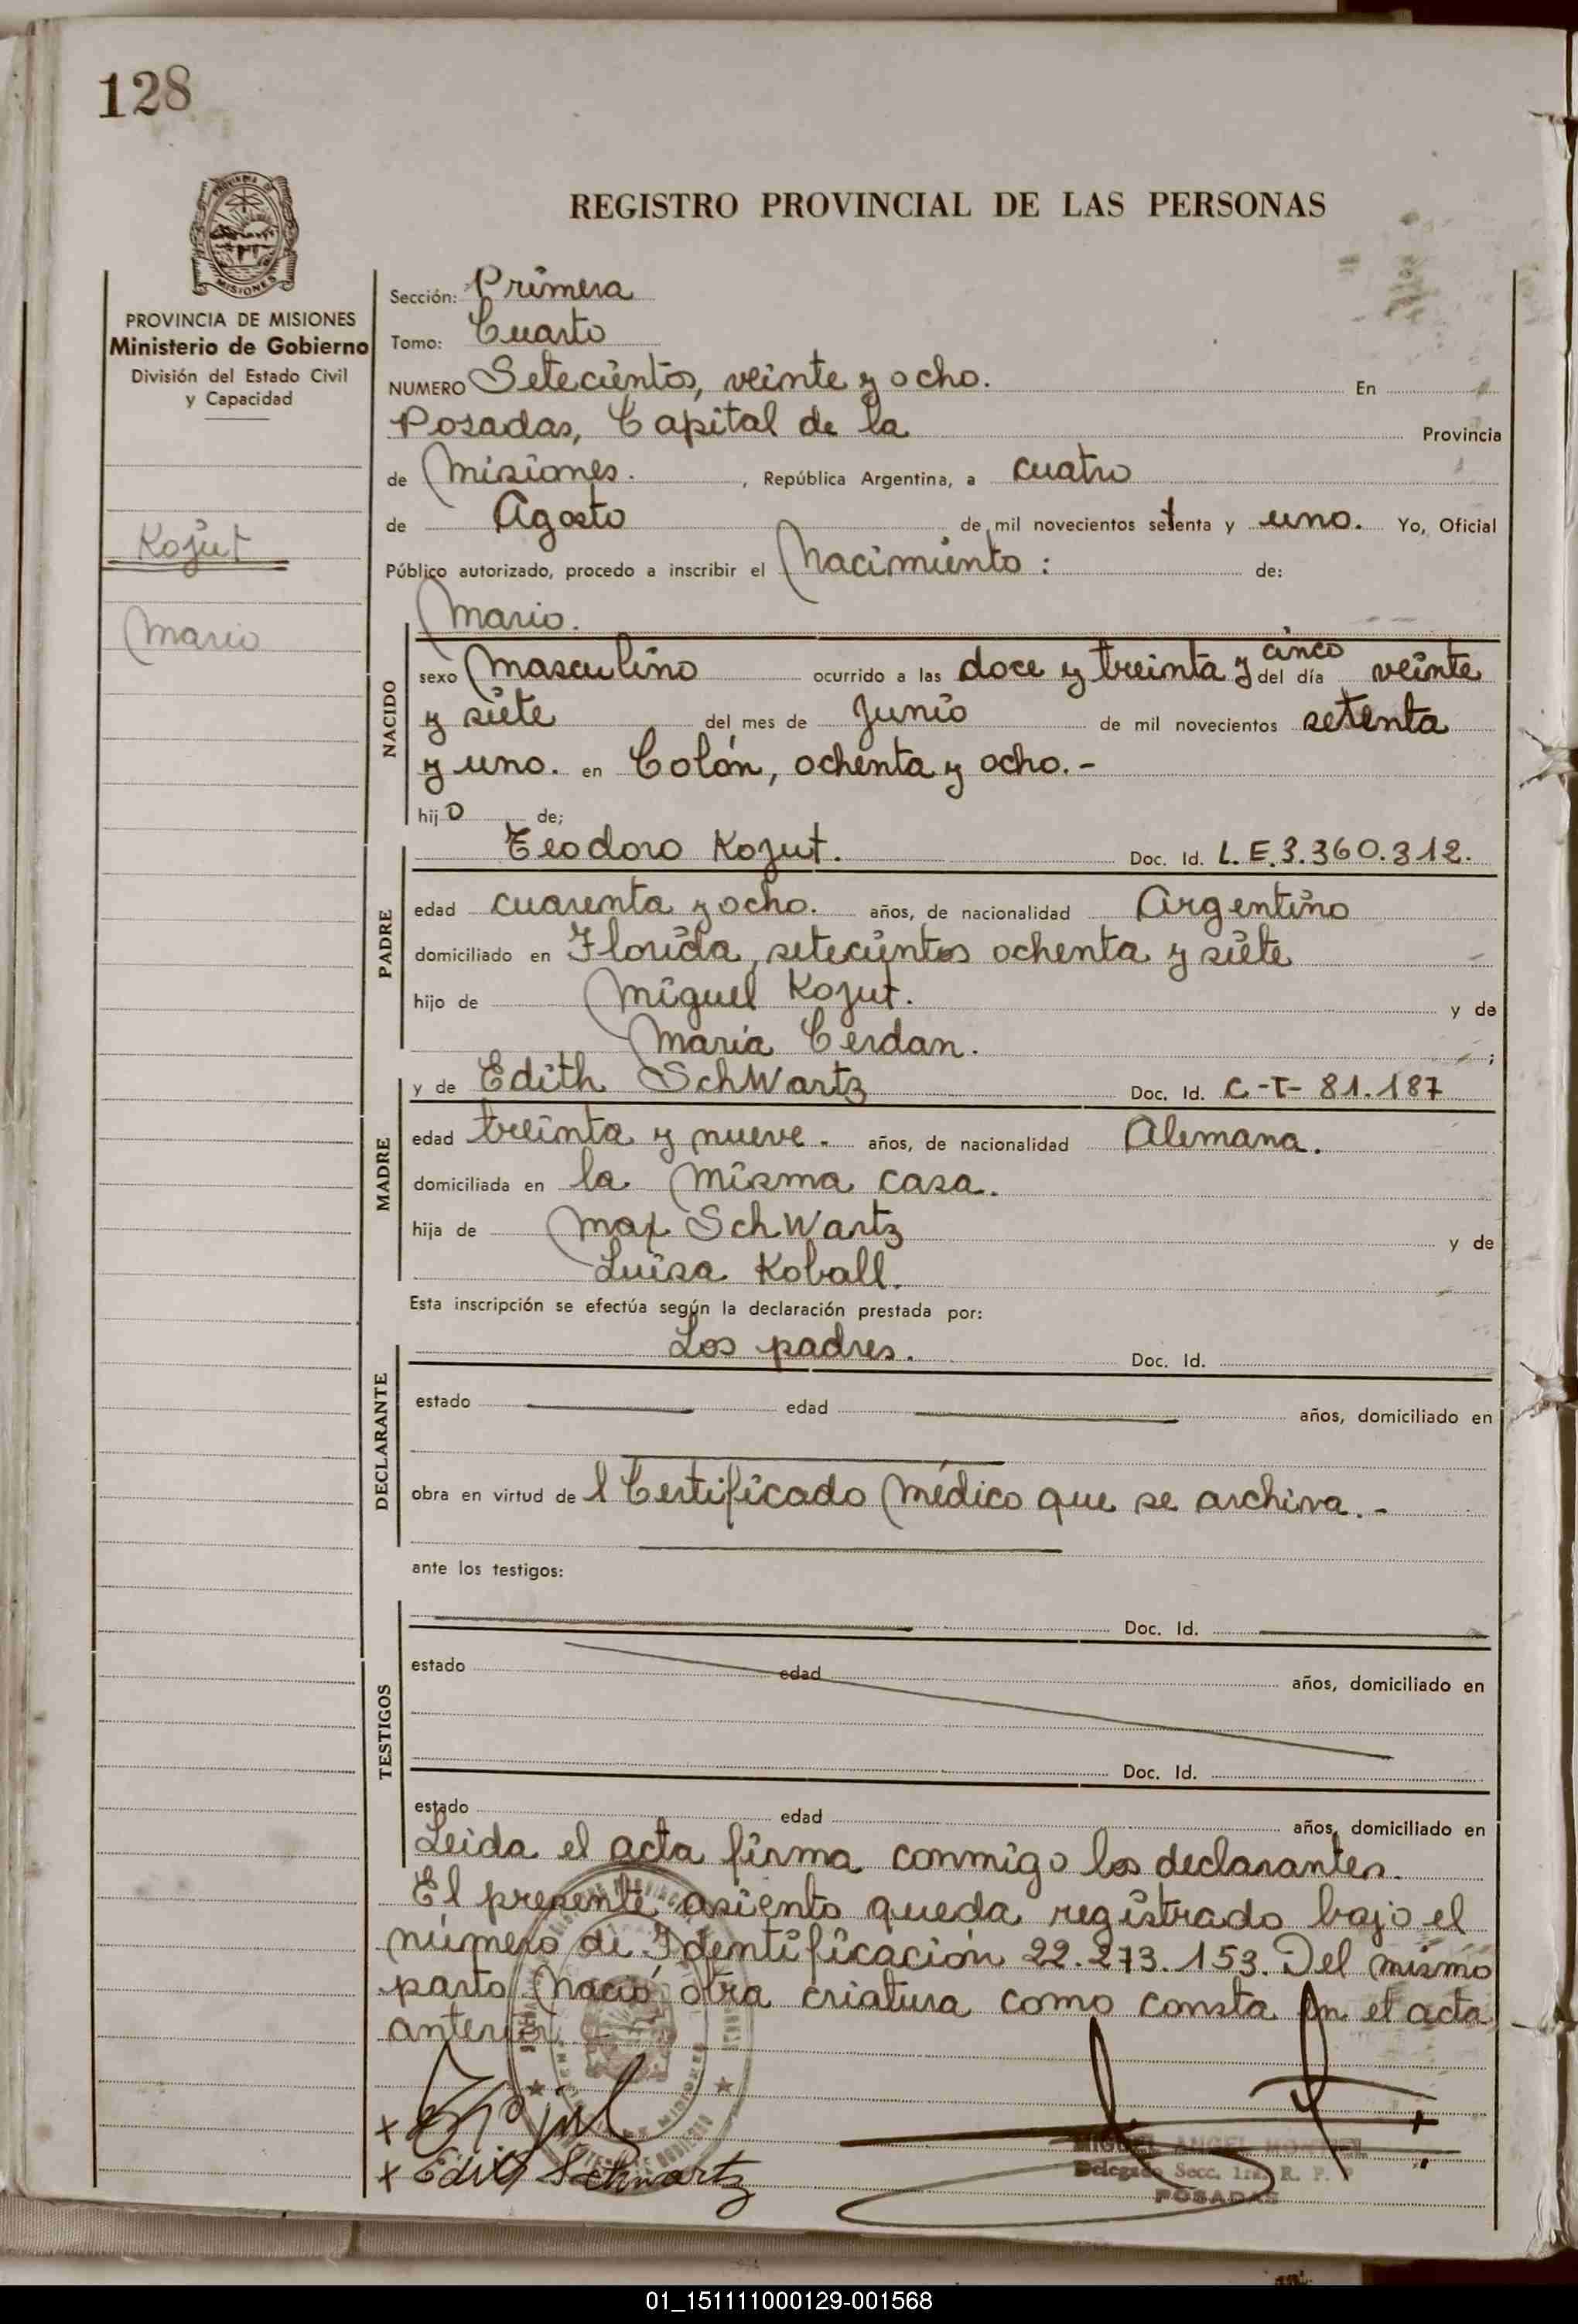 128
REGISTRO PROVINCIAL DE LAS PERSONAS
MISIONES
PROVINCIA DE MISIONES
Ministerio de Gobierno
División del Estado Civil
y Capacidad
Kojut
Mario
Sección: Primera
Tomo: Cuarto
NUMERO Setecientos, veinte y ocho. En
Posadas, Capital de la Provincia
de Misiones. , República Argentina, a cuatro
de Agosto de mil novecientos setenta y uno. Yo, Oficial
Público autorizado, procedo a inscribir el Nacimiento : de:
Mario.
NACIDO
sexo Masculino ocurrido a las doce y treinta y cinco del día veinte
y siete del mes de Junio de mil novecientos setenta
y uno. en Colón, ochenta y ocho.-
hijo de;
PADRE
Teodoro Kojut. Doc. Id. L.E.3.360.312.
edad cuarenta y ocho. años, de nacionalidad Argentino
domiciliado en Florida, setecientos ochenta y siete
hijo de Miguel Kojut. y de
Maria Cerdan. ;
MADRE
y de Edith SchWartz Doc. Id. C-T- 81.187
edad treinta y nueve. años, de nacionalidad Alemana.
domiciliada en la misma casa.
hija de Max SchWartz y de
Luisa Koball.
Esta inscripción se efectúa según la declaración prestada por:
DECLARANTE
Los padres. Doc. Id.
estado edad años, domiciliado en
obra en virtud de l Certificado Médico que se archiva.-
ante los testigos:
TESTIGOS
Doc. Id.
estado edad años, domiciliado en
Doc. Id.
estado edad años, domiciliado en
Leida el acta firma conmigo los declarantes.
El presente asiento queda registrado bajo el
número de Identificación 22.273.153. Del mismo
parto Nació otra criatura como consta en el acta
anterior
x
x Edith Schwartz
MIGUEL ANGEL
Delegado Secc. 1ra. R. P. P
POSADAS
01_151111000129-001568